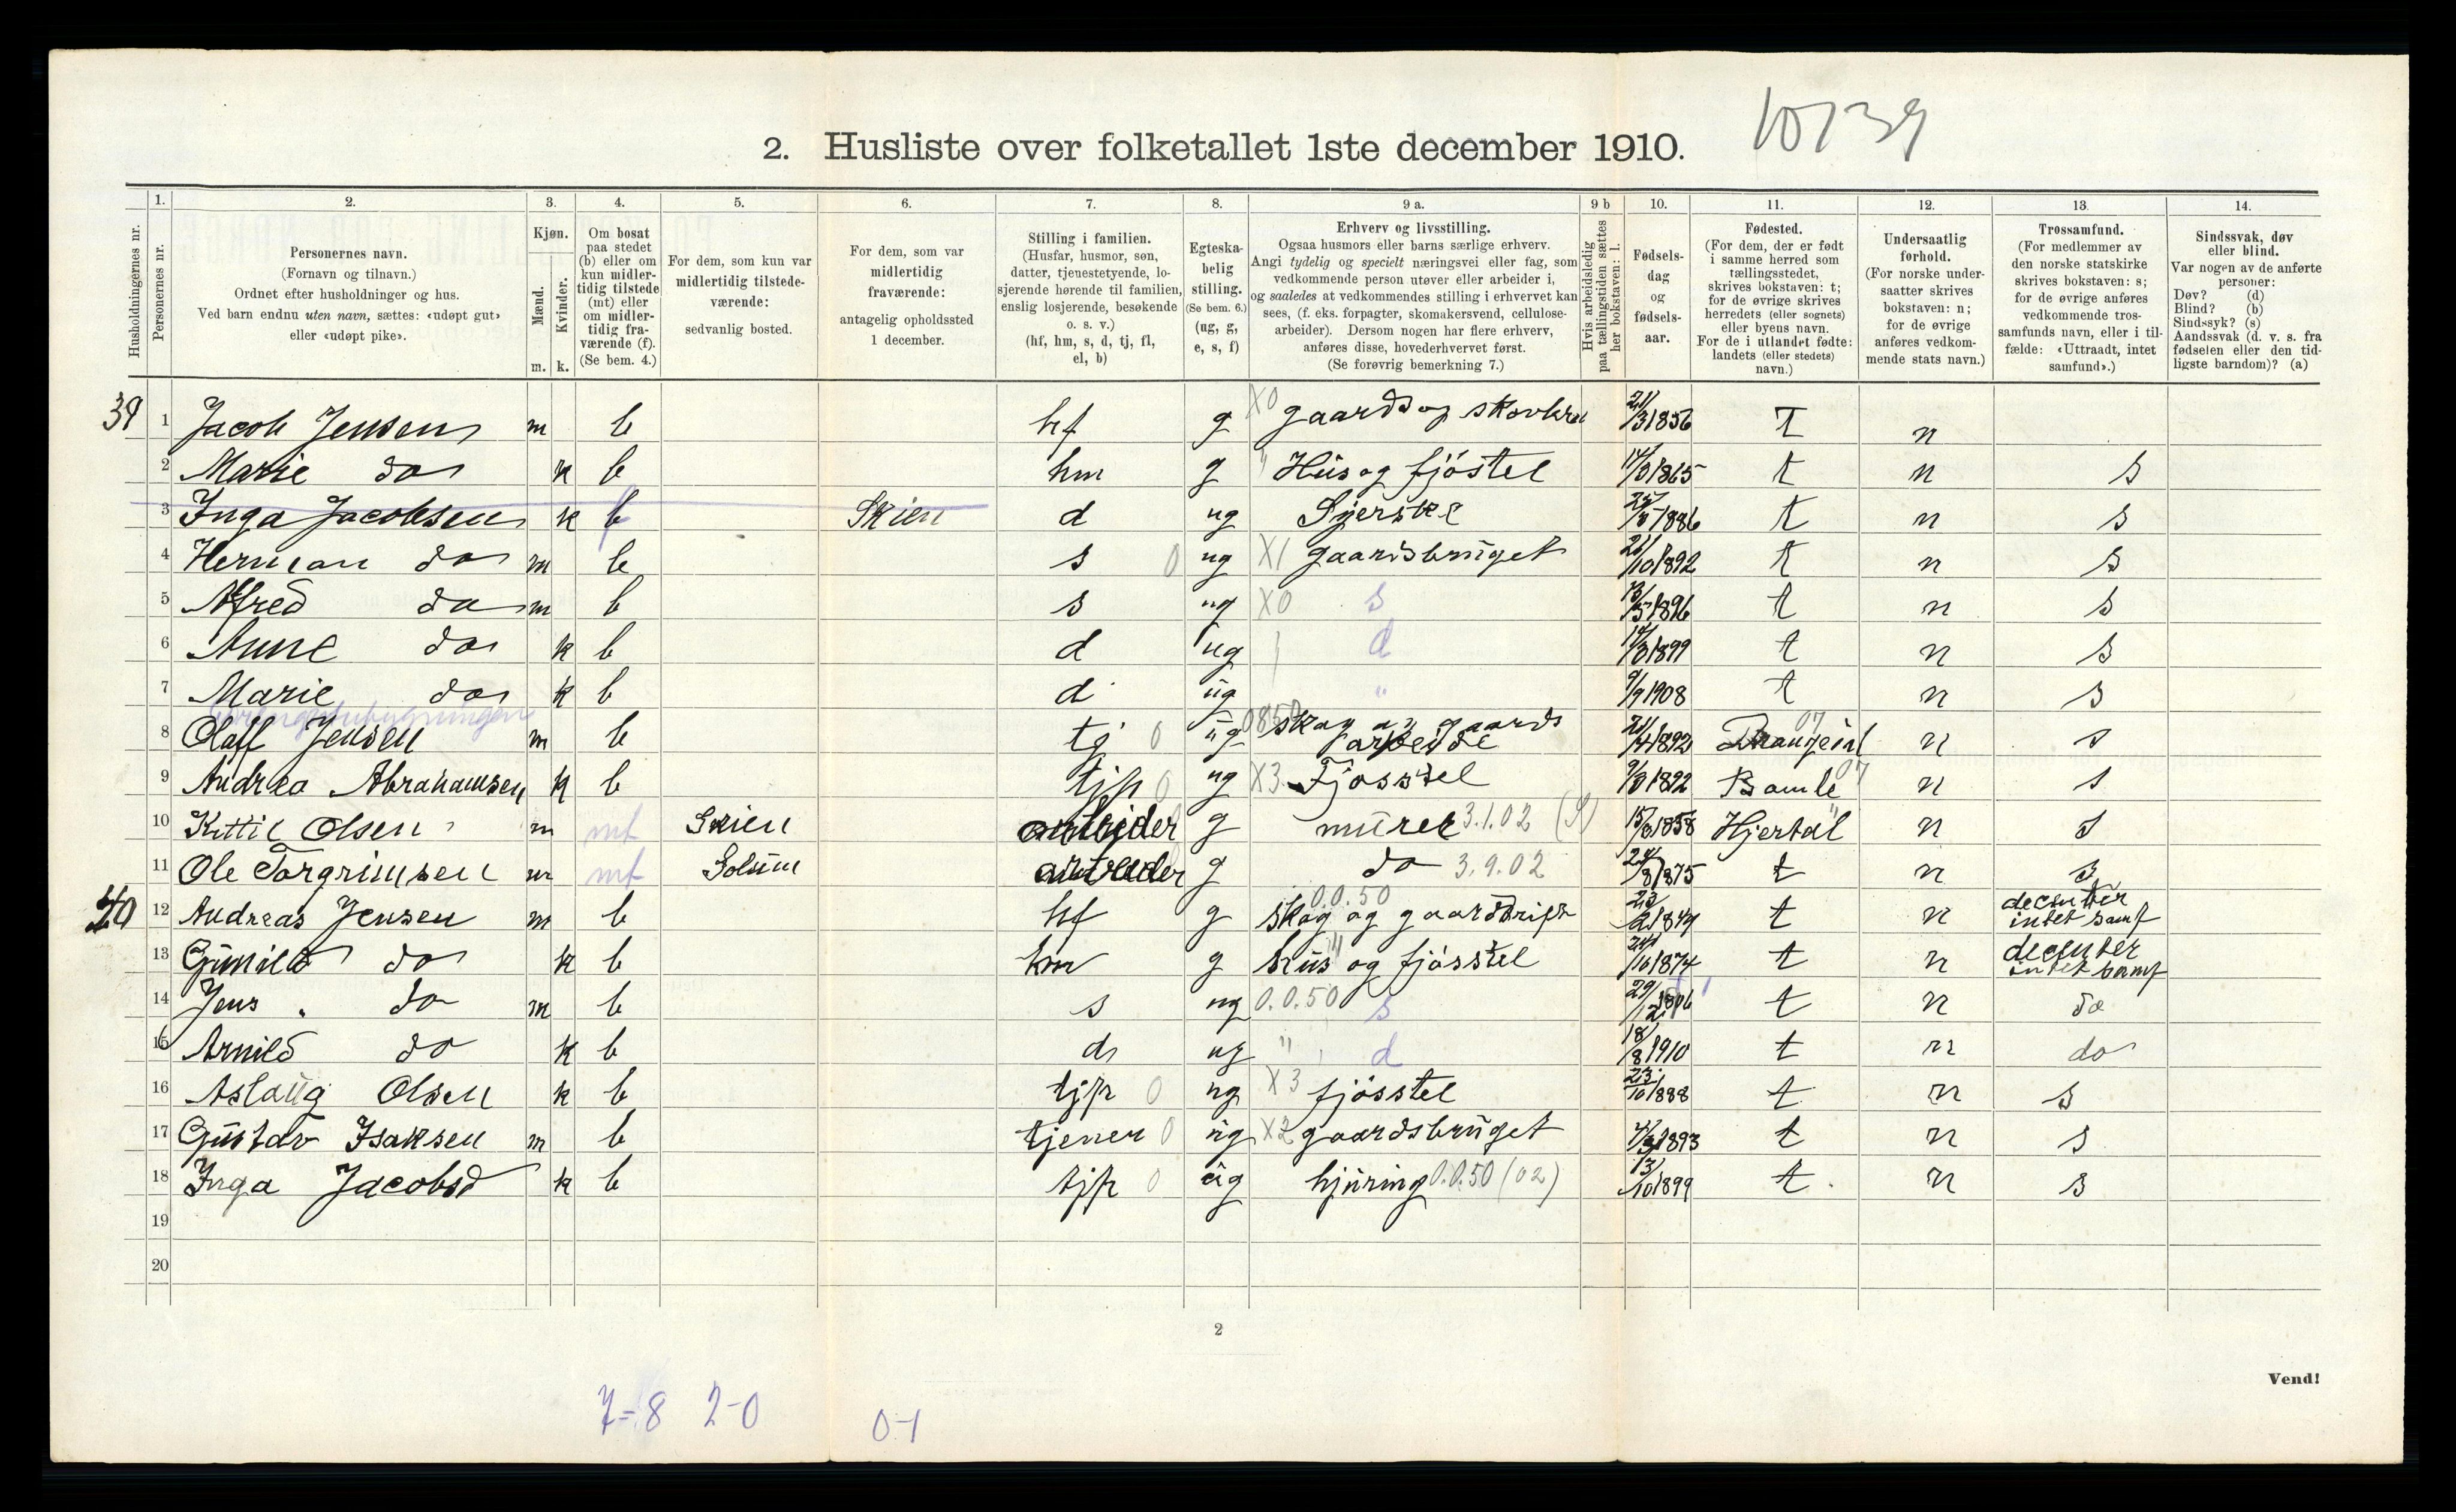 10739
2. Husliste over folketallet 1ste december 1910.
Husholdningernes nr.
1. Personernes nr.
2. Personernes navn. (Fornavn og tilnavn.) Ordnet efter husholdninger og hus. Ved barn endnu uten navn, sættes: «udøpt gut» eller «udøpt pike».
3. Kjøn. Mænd. m. Kvinder. k.
4. Om bosat paa stedet (b) eller om kun midlertidig tilstede (mt) eller om midlertidig fraværende (f). (Se bem. 4.)
5. For dem, som kun var midlertidig tilstedeværende: sedvanlig bosted.
6. For dem, som var midlertidig fraværende: antagelig opholdssted 1 december.
7. Stilling i familien. (Husfar, husmor, søn, datter, tjenestetyende, losjerende hørende til familien, enslig losjerende, besøkende o. s. v.) (hf, hm, s, d, tj, fl, el, b)
8. Egteskabelig stilling. (Se bem. 6.) (ug, g, e, s, f)
9 a. Erhverv og livsstilling. Ogsaa husmors eller barns særlige erhverv. Angi tydelig og specielt næringsvei eller fag, som vedkommende person utøver eller arbeider i, og saaledes at vedkommendes stilling i erhvervet kan sees, (f. eks. forpagter, skomakersvend, cellulosearbeider). Dersom nogen har flere erhverv, anføres disse, hovederhvervet først. (Se forøvrig bemerkning 7.)
9 b Hvis arbeidsledig paa tællingstiden sættes her bokstaven: l.
10. Fødselsdag og fødselsaar.
11. Fødested. (For dem, der er født i samme herred som tællingsstedet, skrives bokstaven: t; for de øvrige skrives herredets (eller sognets) eller byens navn. For de i utlandet fødte: landets (eller stedets) navn.)
12. Undersaatlig forhold. (For norske undersaatter skrives bokstaven: n; for de øvrige anføres vedkommende stats navn.)
13. Trossamfund. (For medlemmer av den norske statskirke skrives bokstaven: s; for de øvrige anføres vedkommende trossamfunds navn, eller i tilfælde: «Uttraadt, intet samfund».)
14. Sindssvak, døv eller blind. Var nogen av de anførte personer: Døv? (d) Blind? (b) Sindssyk? (s) Aandssvak (d. v. s. fra fødselen eller den tidligste barndom)? (a)
39 1 Jacob Jensen m b hf g X0 gaards og 21/3 1856 T n
2 Marie do k b hm g " Hus og fjøstel 1865 t n s
3 Inga Jacobsen k f Skien d ug Syerske 1886 t n s
4 Herman do m b s 0 ug X1 gaardsbruget 21/10 1892 t n s
5 Alfred do m b s ug X0 s 13/5 1896 t n s
6 Anne do k b d ug d 1899 t n s
7 Marie do k b d ug " 9/9 1908 t n s
8 Olaff Jensen m b tj 0 ug skog og gaards arbeide 1892 Drangedal 07 n s
9 Andrea Abrahamsen k b tjp 0 ug X3 Fjosstel 1892 Bamle 07 n s
10 Kittil Olsen m mt Skien arbeider g murer 3.1.02 1858 Hjertdal n s
11 Ole Torgrimsen m mt Solum g do 3.9.02 24/8 1875 t n s
40 12 Andreas Jensen m b hf g 0.0.50 skog og gaardsdrift 23/2 t n intet samf
13 Gunild do k b hm g " hus og fjøsstel 24/10 1874 t n intet samf
14 Jens do m b s ug 0.0.50 s 29/12 t n do
15 Arnild do k b d ug " d 18/8 1910 t n do
16 Aslaug Olsen k b tjp 0 ug X3 fjøsstel 23/10 1888 t n s
17 Gustav Isaksen m b tjener 0 ug X2 gaardsbruget 1893 t n s
18 Inga Jacobsd k b tjp 0 ug hjuring 0.0.50 (02) 13/10 1899 t n s
19
20
2
Vend!
7=8 2-0 0-1